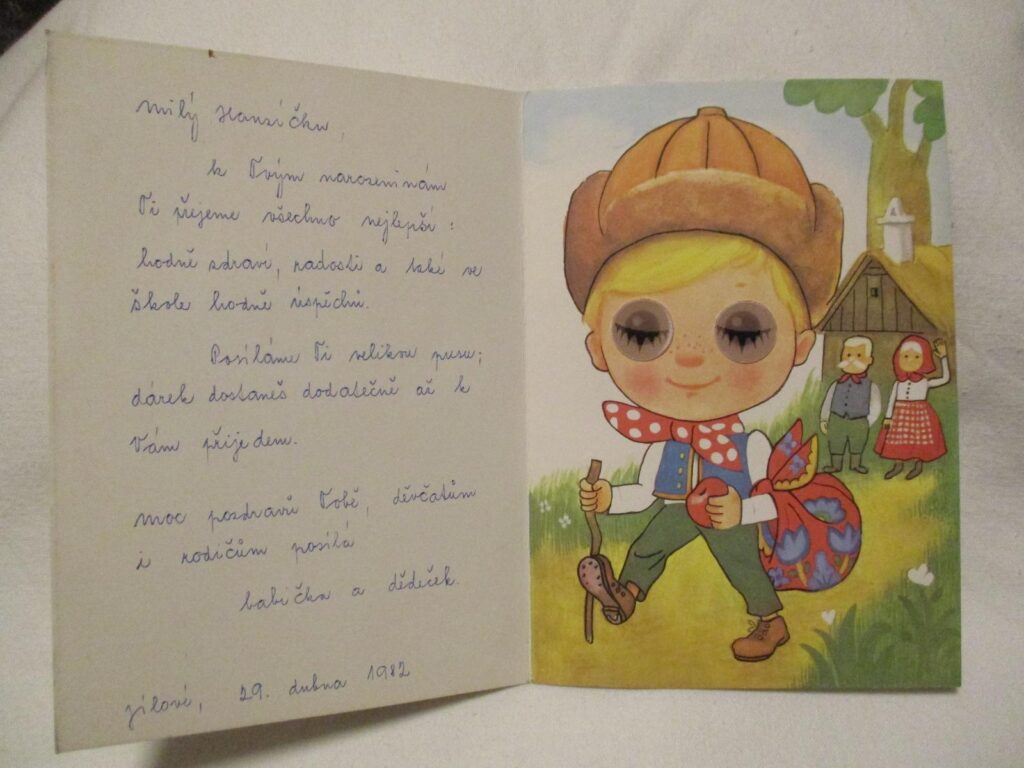 Milý Honzíčku,
k Tvým narozeninám
Ti přejeme všechno nejlepší:
hodně zdraví, radosti a také ve
škole hodně úspěchů.
Posíláme Ti velikou pusu;
dárek dostaneš dodatečně až k
Vám přijedem.
Moc pozdravů Tobě, děvčatům
i rodičům posílá
babička a dědeček.
Jílové, 29. dubna 1982